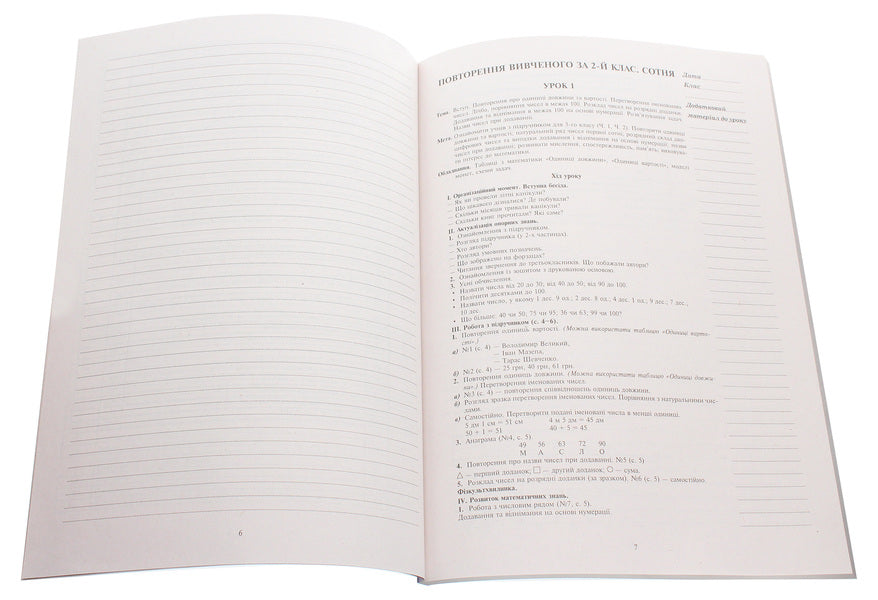 6
ПОВТОРЕННЯ ВИВЧЕНОГО ЗА 2-Й КЛАС. СОТНЯ
УРОК 1
Дата
Клас
Додатковий
матеріал до уроку
Тема. Вступ. Повторення про одиниці довжини та вартості. Перетворення іменованих
чисел. Лічба, порівняння чисел в межах 100. Розклад чисел на розрядні доданки.
Додавання та віднімання в межах 100 на основі нумерації. Розв'язування задач.
Назви чисел при додаванні.
Мета. Ознайомити учнів з підручником для 3-го класу (Ч. 1, Ч. 2). Повторити одиниці
довжини та вартості, натуральний ряд чисел першої сотні, розрядний склад дво-
цифрових чисел та випадки додавання і віднімання на основі нумерації, назви
чисел при додаванні; розвивати мислення, спостережливість, пам'ять; виховува-
ти інтерес до математики.
Обладнання. Таблиці з математики «Одиниці довжини», «Одиниці вартості», моделі
монет, схеми задач.
Хід уроку
I. Організаційний момент. Вступна бесіда.
— Як ви провели літні канікули?
— Що цікавого дізналися? Де побували?
— Скільки місяців тривали канікули?
— Скільки книг прочитали? Які саме?
II. Актуалізація опорних знань.
1. Ознайомлення з підручником.
— Розгляд підручника (у 2-х частинах).
— Хто автори?
— Розгляд умовних позначень.
— Що зображено на форзацах?
— Читання звернення до третьокласників. Що побажали автори?
2. Ознайомлення із зошитом з друкованою основою.
3. Усні обчислення.
• Назвати числа від 20 до 30; від 40 до 50; від 90 до 100.
• Полічити десятками до 100.
• Назвати число, у якому 1 дес. 9 од.; 2 дес. 8 од.; 4 дес. 1 од.; 9 дес.; 7 дес.;
10 дес.
• Що більше: 40 чи 50; 75 чи 95; 36 чи 63; 99 чи 100?
III. Робота з підручником (с. 4–6).
1. Повторення одиниць вартості. (Можна використати таблицю «Одиниці варто-
сті».)
а) №1 (с. 4) — Володимир Великий,
— Іван Мазепа,
— Тарас Шевченко.
б) №2 (с. 4) — 25 грн, 40 грн, 61 грн.
2. Повторення одиниць довжини. (Можна використати таблицю «Одиниці довжи-
ни».) Перетворення іменованих чисел.
а) №3 (с. 4) — повторення співвідношень одиниць довжини.
б) Розгляд зразка перетворення іменованих чисел. Порівняння з натуральними чис-
лами.
в) Самостійно. Перетворити подані іменовані числа в менші одиниці.
5 дм 1 см = 51 см 4 м 5 дм = 45 дм
50 + 1 = 51 40 + 5 = 45
3. Анаграма (№4, с. 5).
49 56 63 72 90
М А С Л О
4. Повторення про назви чисел при додаванні. №5 (с. 5)
△ — перший доданок; □ — другий доданок; ○ — сума.
5. Розклад чисел на розрядні доданки (за зразком). №6 (с. 5) — самостійно.
Фізкультхвилинка.
IV. Розвиток математичних знань.
1. Робота з числовим рядом (№7, с. 5).
Додавання та віднімання на основі нумерації.
7